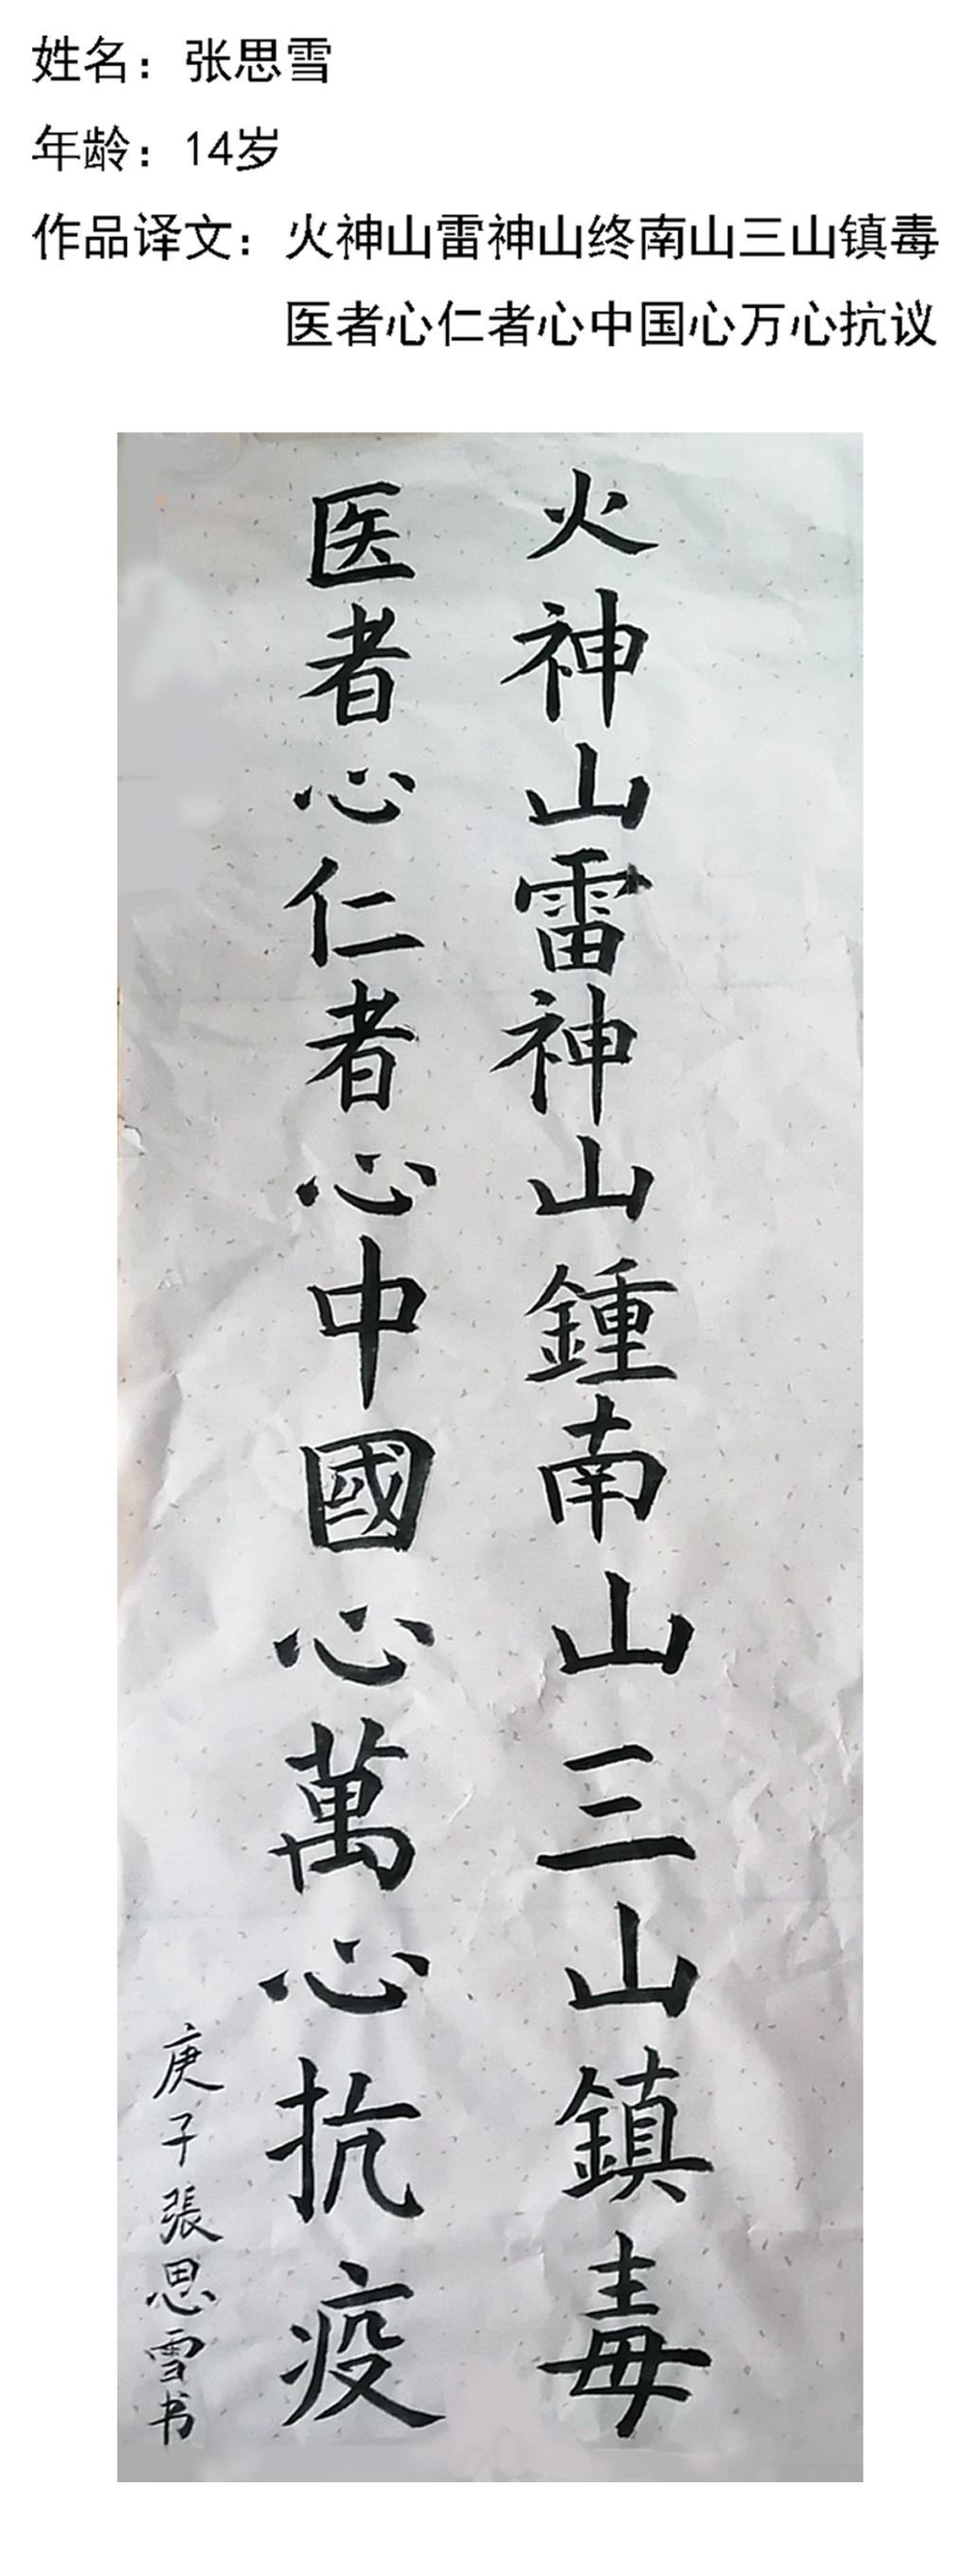 姓名：张思雪
年龄：14岁
作品译文：火神山雷神山终南山三山镇毒
医者心仁者心中国心万心抗议
火神山雷神山鍾南山三山鎮毒
医者心仁者心中國心萬心抗疫
庚子張思雪书